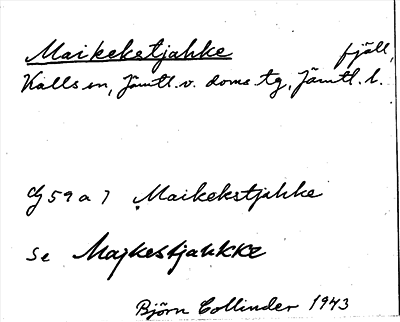 Maikekstjahke fjäll,
Kalls sn, Jämtl. v. doms. tg, Jämtl. l.
59 a 7 Maikekstjahke
Se Majkestjahkke
Björn Collinder 1943